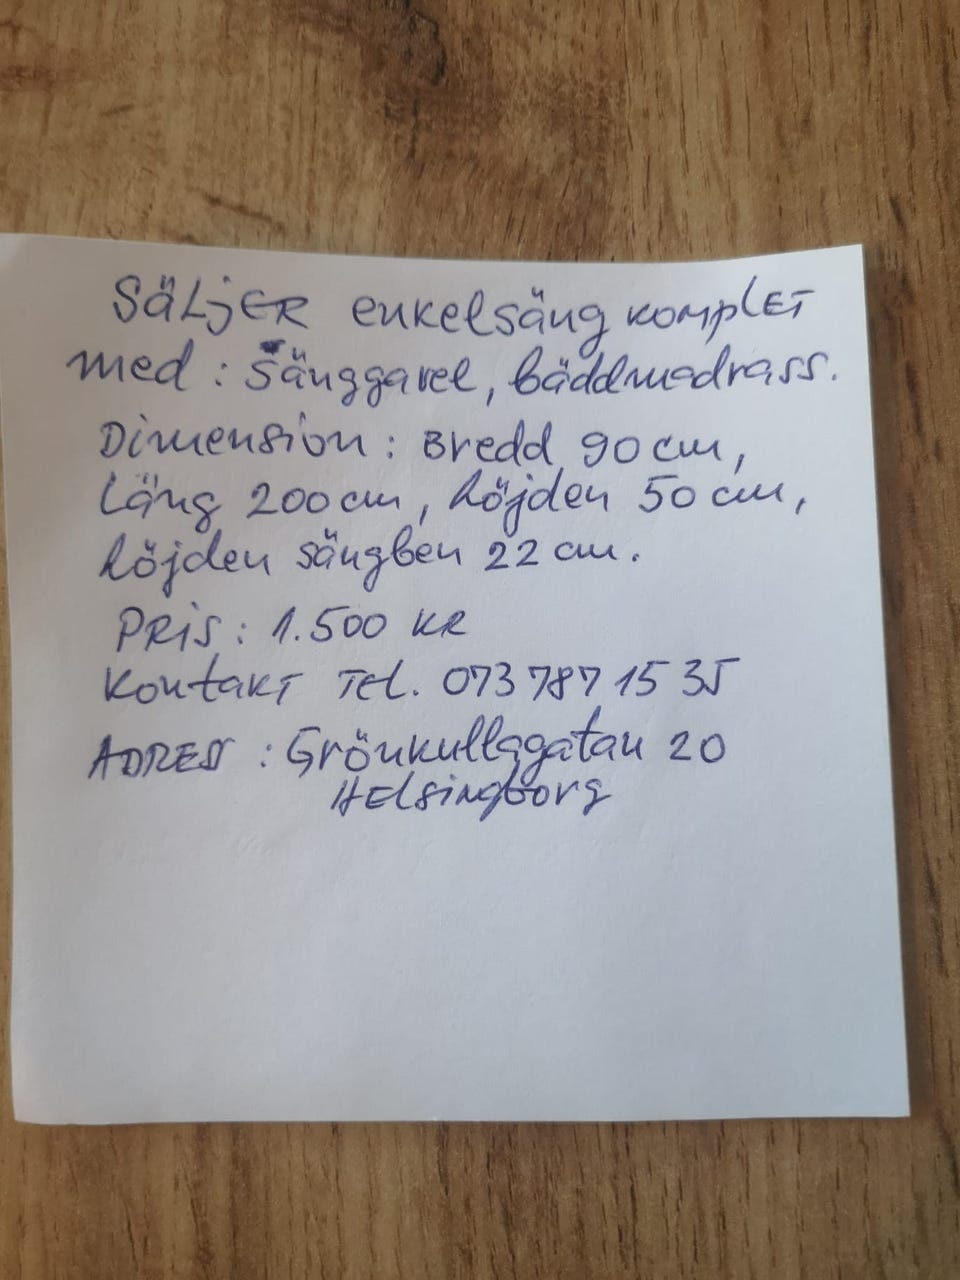 SäLjER enkelsäng komplET
med : Sänggavel, bäddmadrass.
Dimension : Bredd 90 cm,
Läng 200 cm, höjden 50 cm,
höjden sängben 22 cm.
PRiS : 1.500 KR
Kontakt Tel. 073 787 15 35
ADRES : Grönkullagatan 20
HElsingborg